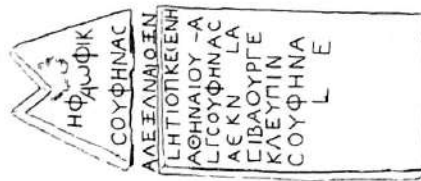 ΗΦΔΩΦΙΚ
ϹΟΥΦΗΝΑϹ
ΑΛΕΞΑΝΑΙΩΞΝ
LΗΤΙΟΠΚΕΙΕΝΗ
ΑΘΗΝΑΙΟΥ -Α
LΓϹΟΥΦΗΝΑϹ
ΑΕΚΝ LΑ
ϹΙΒΑΟΥΡΓΕ
ΚΛΕΥΠΙΝ
ϹΟΥΦΗΝΑ
L Ε